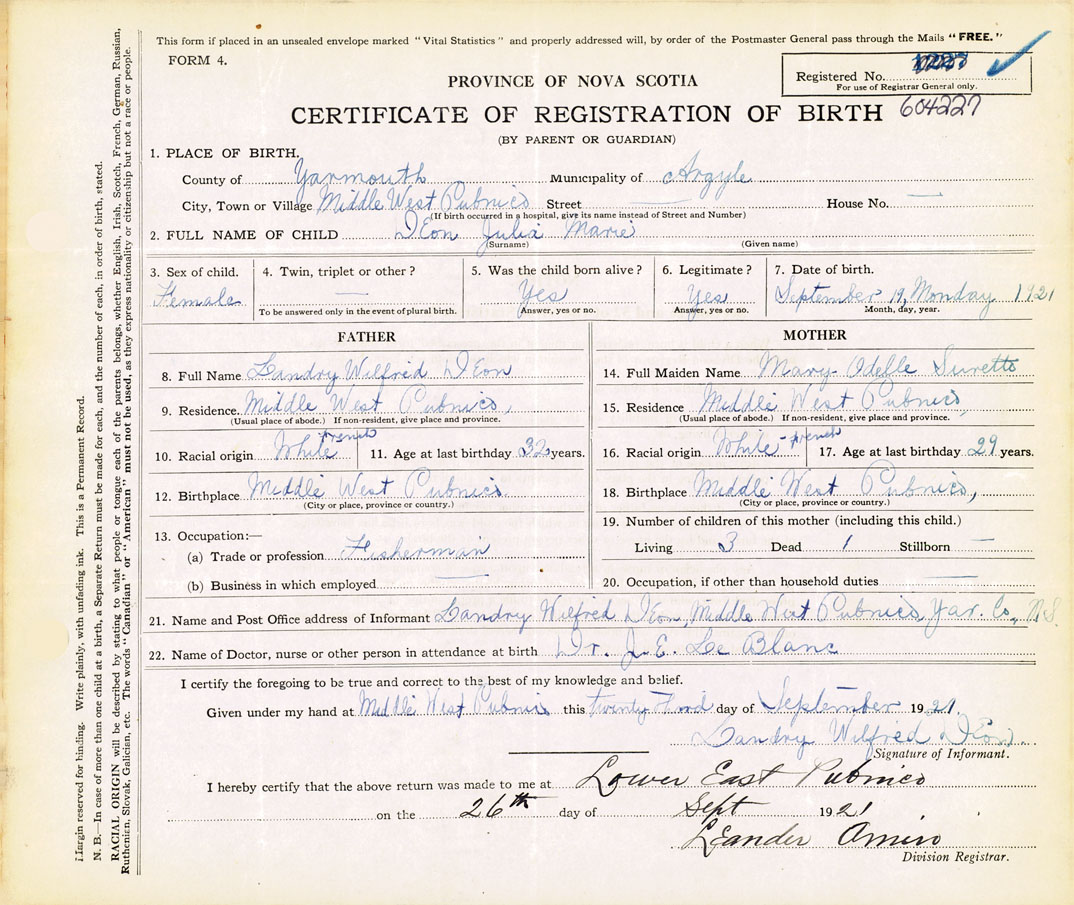 This form if placed in an unsealed envelope marked "Vital Statistics" and properly addressed will, by order of the Postmaster General pass through the Mails "FREE."
FORM 4.
Registered No.
For use of Registrar General only.
604227
PROVINCE OF NOVA SCOTIA
CERTIFICATE OF REGISTRATION OF BIRTH
(BY PARENT OR GUARDIAN)
1. PLACE OF BIRTH.
County of Yarmouth Municipality of Argyle
City, Town or Village Middle West Pubnico Street — House No. —
(If birth occurred in a hospital, give its name instead of Street and Number)
2. FULL NAME OF CHILD DEon Julia Marie
(Surname) (Given name)
3. Sex of child. 4. Twin, triplet or other? 5. Was the child born alive? 6. Legitimate? 7. Date of birth.
Female — Yes Yes September 19, Monday 1921
To be answered only in the event of plural birth. Answer, yes or no. Answer, yes or no. Month, day, year.
FATHER
8. Full Name Landry Wilfred DEon
9. Residence. Middle West Pubnico,
(Usual place of abode.) If non-resident, give place and province.
10. Racial origin White french 11. Age at last birthday 32 years.
12. Birthplace Middle West Pubnico
(City or place, province or country.)
13. Occupation:—
(a) Trade or profession Fisherman
(b) Business in which employed —
MOTHER
14. Full Maiden Name Mary Odelle Surette
15. Residence Middle West Pubnico,
(Usual place of abode.) If non-resident, give place and province.
16. Racial origin White - french 17. Age at last birthday 29 years.
18. Birthplace Middle West Pubnico,
(City or place, province or country.)
19. Number of children of this mother (including this child.)
Living 3 Dead 1 Stillborn —
20. Occupation, if other than household duties —
21. Name and Post Office address of Informant Landry Wilfred DEon, Middle West Pubnico, Yar. Co., N.S.
22. Name of Doctor, nurse or other person in attendance at birth Dr. J. E. Le Blanc
I certify the foregoing to be true and correct to the best of my knowledge and belief.
Given under my hand at Middle West Pubnico this twenty day of September 1921
Landry Wilfred DEon
Signature of Informant.
I hereby certify that the above return was made to me at Lower East Pubnico
on the 26th day of Sept 1921
LEander Amiro
Division Registrar.
Margin reserved for binding. Write plainly, with unfading ink. This is a Permanent Record.
N. B.—In case of more than one child at a birth, a Separate Return must be made for each, and the number of each, in order of birth, stated.
RACIAL ORIGIN will be described by stating to what people or tongue each of the parents belongs, whether English, Irish, Scotch, French, German, Russian,
Ruthenian, Slovak, Galician, etc. The words "Canadian" or "American" must not be used, as they express nationality or citizenship but not a race or people.